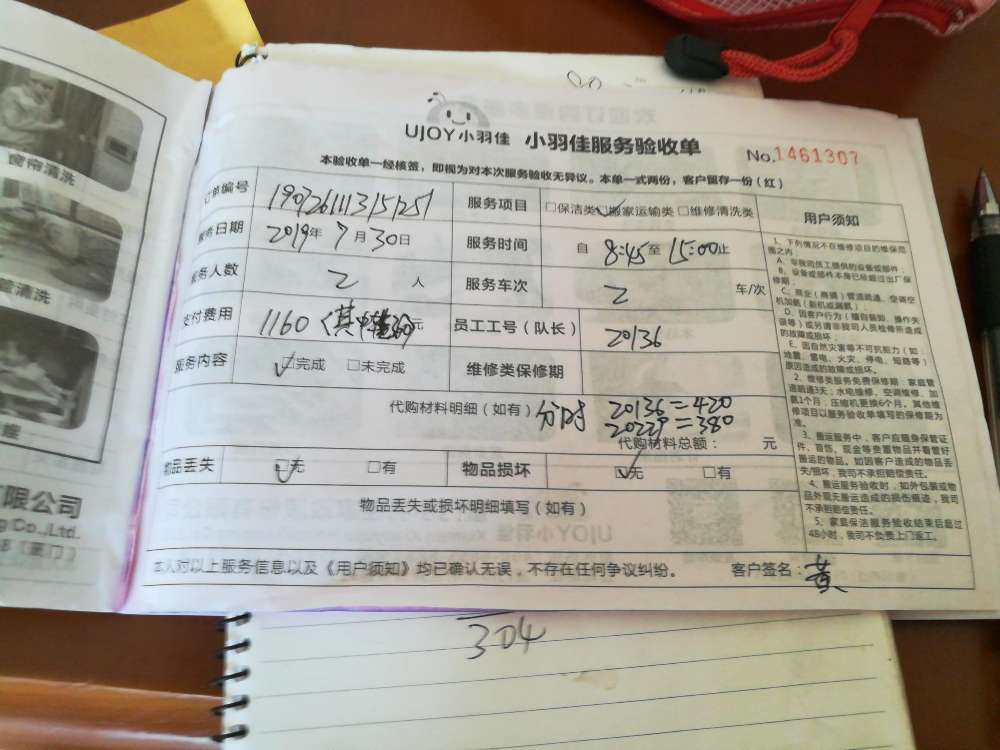 窗帘清洗
管清洗
有限公司
g Co.,Ltd.
UJOY小羽佳 小羽佳服务验收单
No.1461307
本验收单一经核签，即视为对本次服务验收无异议。本单一式两份，客户留存一份（红）
订单编号 服务项目 □保洁类 ☑搬家运输类 □维修清洗类
服务日期 2019年 7月 30日 服务时间 自 8:45 至 15:00 止
服务人数 2 人 服务车次 2 车/次
支付费用 1160 元 员工工号（队长） 20136
服务内容 ☑完成 □未完成 维修类保修期
代购材料明细（如有） 分时 20136=420
20229=380
代购材料总额： 元
物品丢失 ☑无 □有 物品损坏 ☑无 □有
物品丢失或损坏明细填写（如有）
本人对以上服务信息以及《用户须知》均已确认无误，不存在任何争议纠纷。 客户签名：黄
用户须知
1、下列情况不在维修项目的维保范
围之内：
A、非我司员工提供的设备或部件；
B、设备或部件本身已经超过出厂保
修期；
C、商业（商铺）管道疏通、空调空
机加氟（新机或漏氟）；
D、因客户行为（擅自装卸、操作失
误等）或另请非我司人员检修所造成
的故障或损坏；
E、因自然灾害等不可抗能力（如
地震、雷电、火灾、停电、短路等）
原因造成的故障或损坏。
2、维修类服务免费保修期：家庭管
道疏通3天；水电维修、空调维修、加
氟1个月；压缩机更换6个月。其他维
修项目以服务验收单填写的保修期为
准。
3、搬运服务中，客户应随身保管证
件、首饰、现金等贵重物品并看管好
搬运的物品。如因客户造成的物品丢
失/损坏，我司不承担赔偿责任。
4、搬运服务验收时，如外包装或物
品外观无搬运造成的损伤痕迹，我司
不承担赔偿责任。
5、家庭保洁服务验收结束后超过
48小时，我司不负责上门返工。
304